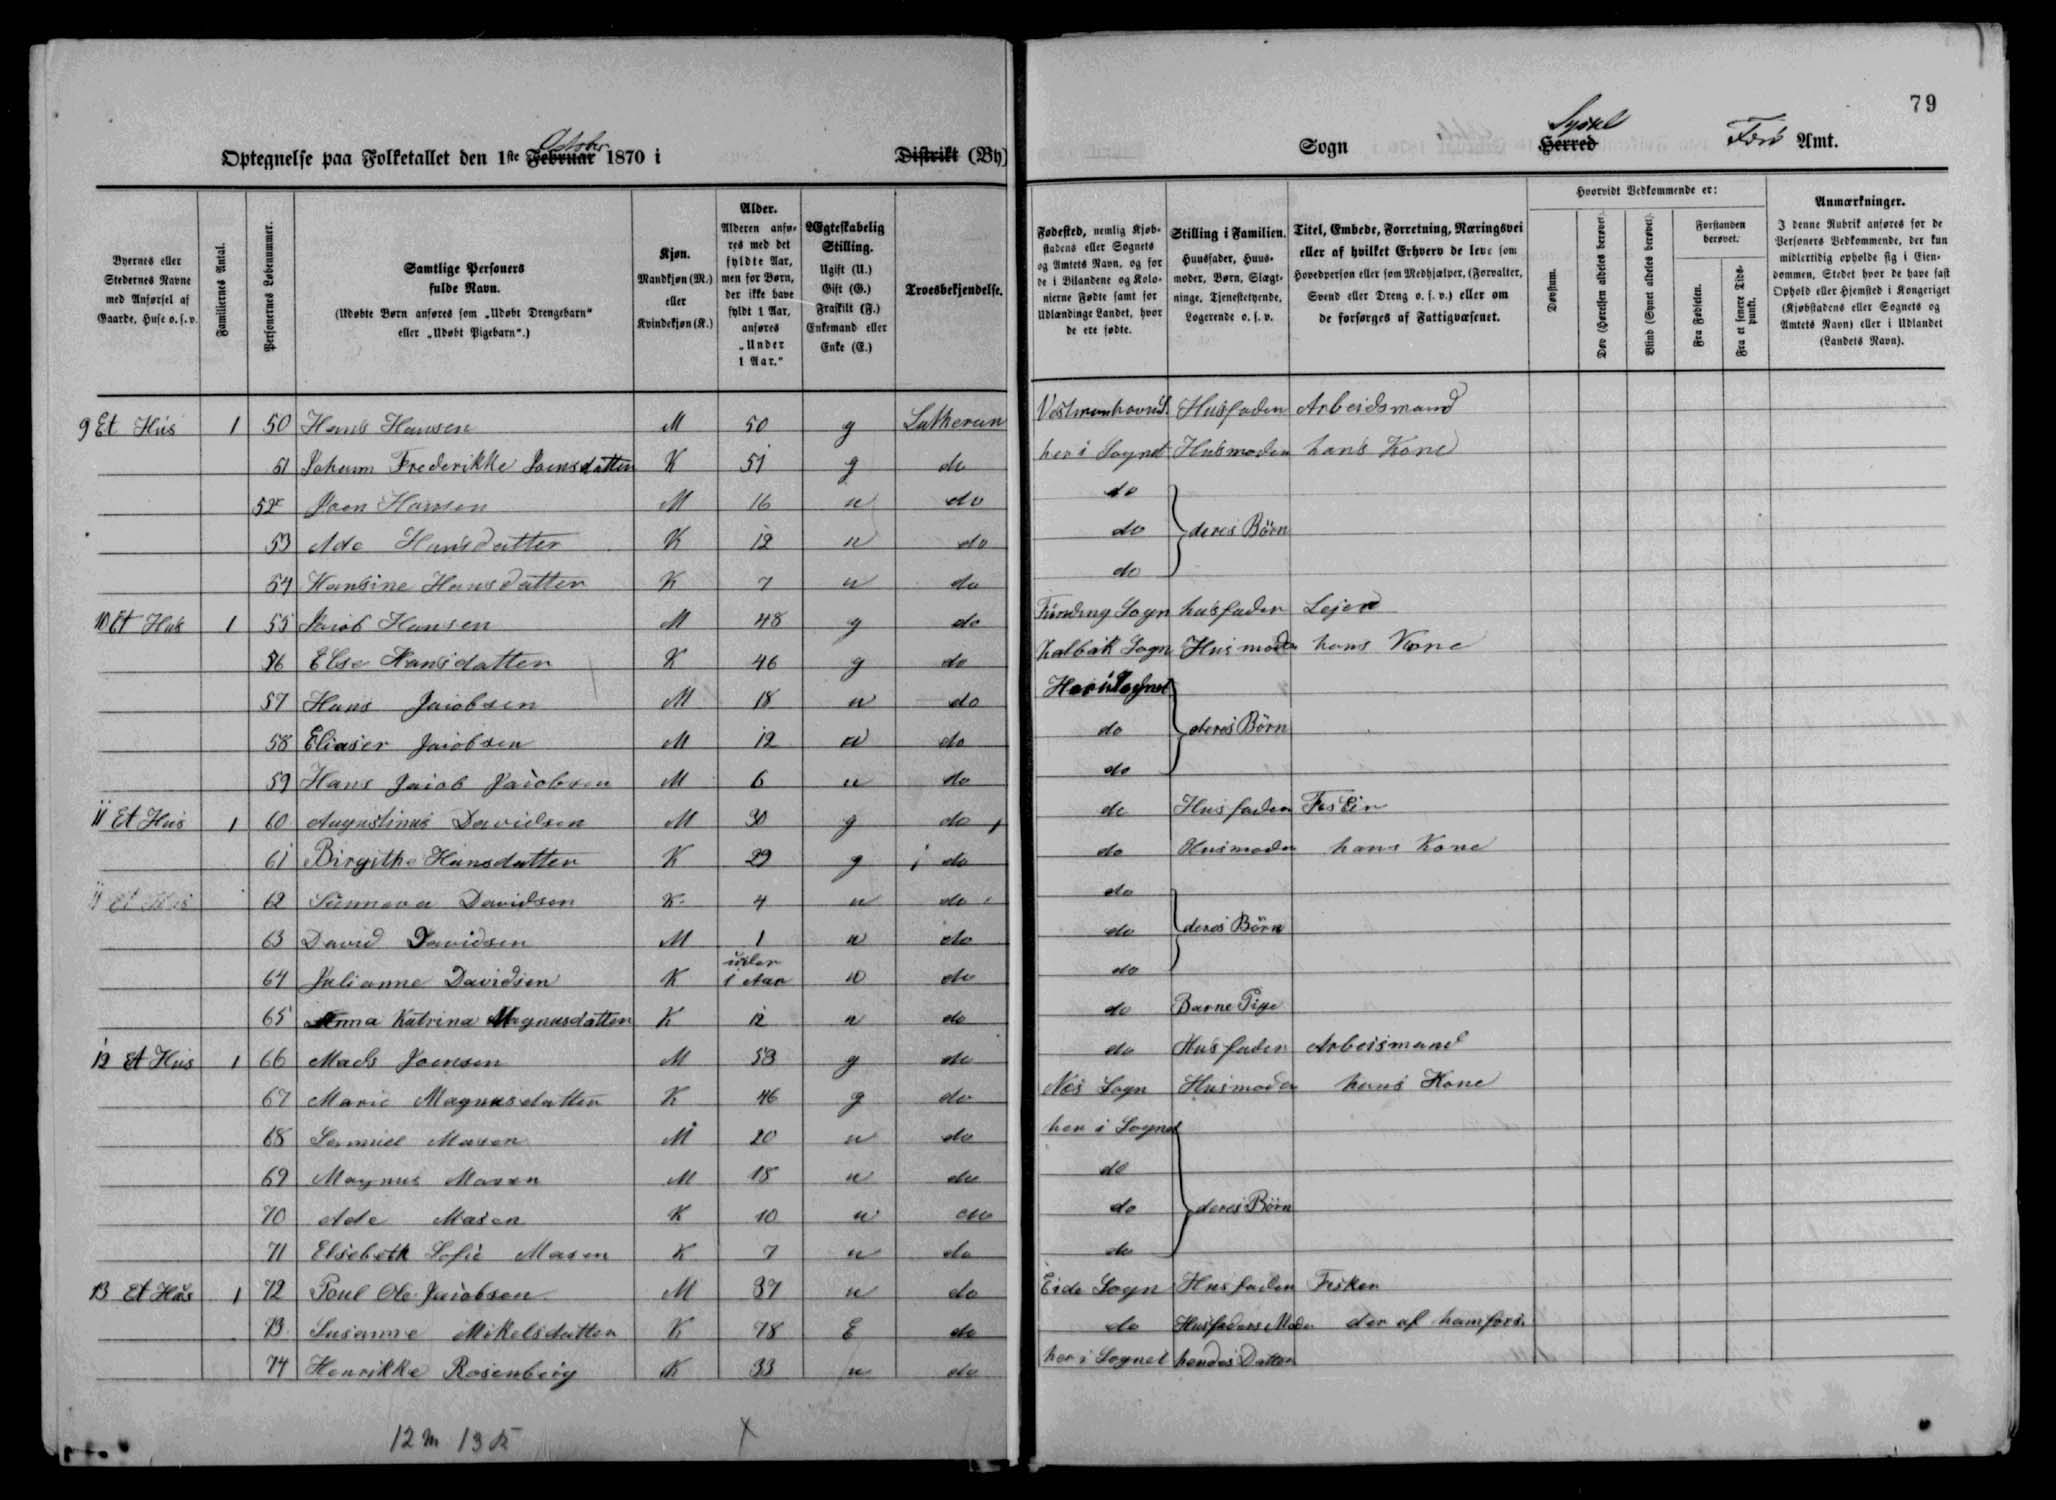 79
Optegnelse paa Folketallet den 1ste Februar October 1870 i Distrikt (By) Sogn Herred Sysel Færø Amt.
Byernes eller Stedernes Navne med Anførsel af Gaarde, Huse o. s. v.
Familiernes Antal.
Personernes Løbenummer.
Samtlige Personers fulde Navn. (Udøbte Børn anføres som „Udøbt Drengebarn“ eller „Udøbt Pigebarn“.)
Kjøn. Mandkjøn (M.) eller Kvindekjøn (K.)
Alder. Alderen anføres med det fyldte Aar, men for Børn, der ikke have fyldt 1 Aar, anføres „Under 1 Aar.“
Ægteskabelig Stilling. Ugift (U.) Gift (G.) Fraskilt (F.) Enkemand eller Enke (E.)
Troesbekjendelse.
Fødested, nemlig Kjøbstadens eller Sognets og Amtets Navn, og for de i Bilandene og Kolonierne Fødte samt for Udlændinge Landet, hvor de ere fødte.
Stilling i Familien. Huusfader, Huusmoder, Børn, Slægtninge, Tjenestetyende, Logerende o. s. v.
Titel, Embede, Forretning, Næringsvei eller af hvilket Erhverv de leve som Hovedperson eller som Medhjælper, (Forvalter, Svend eller Dreng o. s. v.) eller om de forsørges af Fattigvæsenet.
Hvorvidt Vedkommende er:
Døvstum.
Døv (Hørelsen aldeles berøvet).
Blind (Synet aldeles berøvet).
Forstanden berøvet.
Fra Fødselen.
Fra et senere Tidspunkt.
Anmærkninger. I denne Rubrik anføres for de Personers Vedkommende, der kun midlertidig opholde sig i Eiendommen, Stedet hvor de have fast Ophold eller Hjemsted i Kongeriget (Kjøbstadens eller Sognets og Amtets Navn) eller i Udlandet (Landets Navn).
9 Et Hus 1 50 Hans Hansen M 50 g Lutheran Vestmanhavn S. Husfader Arbeidsmand
51 Johanne Frederikke Joensdatter K 51 g do her i Sognet Husmoder hans Kone
52 Joen Hansen M 16 u do do
53 Ade Hansdatter K 12 u do do deres Börn
54 Hansine Hansdatter K 7 u do do
10 Et Hus 1 55 Jaiob Hansen M 48 g do Funding Sogn husfader Lejer
56 Else Hansdatter K 46 g do Kalbak Sogn Husmoder hans Kone
57 Hans Jaiobsen M 18 u do Her i Sognet
58 Eliaser Jaiobsen M 12 u do do deres Börn
59 Hans Jaiob Jaiobsen M 6 u do do
11 Et Hus 1 60 Augustinus Davidsen M 30 g do do Husfader Fisker
61 Birgithe Hansdatter K 29 g do do Husmoder hans Kone
11 Et Hus 62 Sunneva Davidsen K 4 u do do
63 David Davidsen M 1 u do do deres Börn
64 Julianne Davidsen K under 1 Aar u do do
65 Anna Katrina Magnusdatter K 12 u do do Barne Pige
12 Et Hus 1 66 Mads Joensen M 53 g do do Husfader Arbeismand
67 Marie Magnusdatter K 46 g do Nes Sogn Husmoder hans Kone
68 Samuel Masen M 20 u do her i Sognet
69 Magnus Masen M 18 u do do
70 Ade Masen K 10 u do do deres Börn
71 Elsebeth Sofie Masen K 7 u do do
13 Et Hus 1 72 Poul Ole Jaiobsen M 37 u do Eide Sogn Husfader Fisker
73 Susanne Mikelsdatter K 78 E do do Husfaders Moder der af ham førs.
74 Henrikke Rosenberg K 33 u do her i Sognet hendes Datter
12 M 13 K X